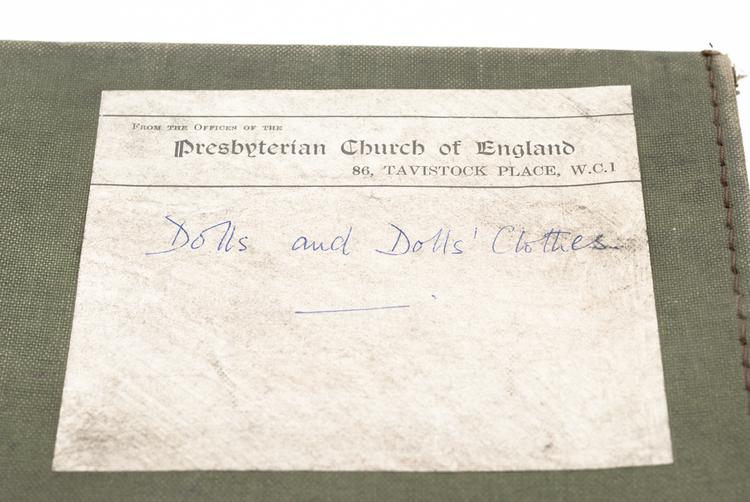 From the Offices of the
Presbyterian Church of England
86, TAVISTOCK PLACE, W.C.1
Dolls and Dolls' Clothes